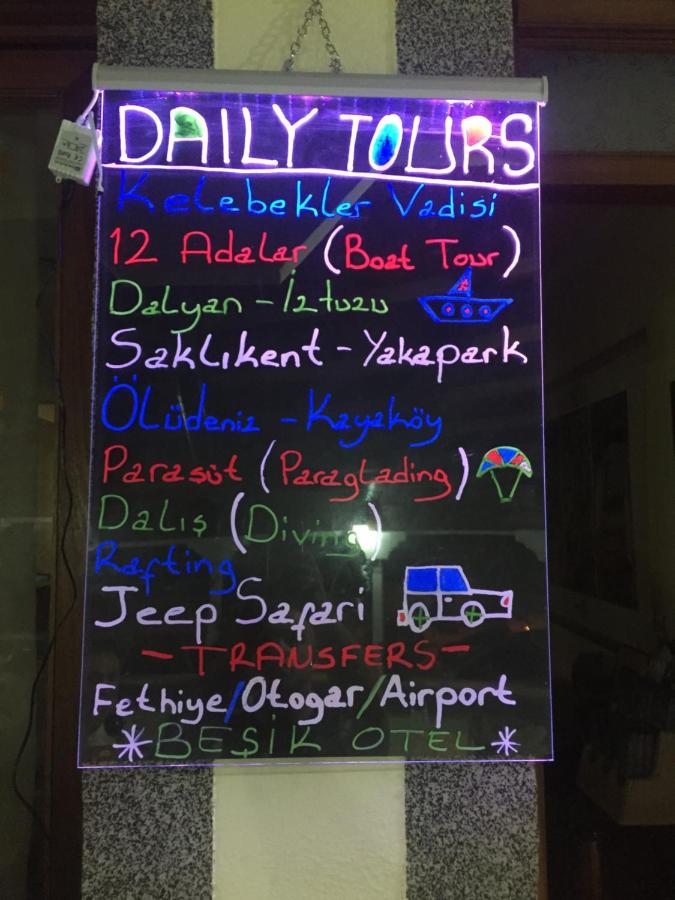 DAILY TOURS
Kelebekler Vadisi
12 Adalar (Boat Tour)
Dalyan - İztuzu
Saklıkent - Yakapark
Ölüdeniz - Kayaköy
Parasüt (Paraglading)
Dalış (Diving)
Rafting
Jeep Safari
- TRANSFERS -
Fethiye/Otogar/Airport
* BEŞİK OTEL *